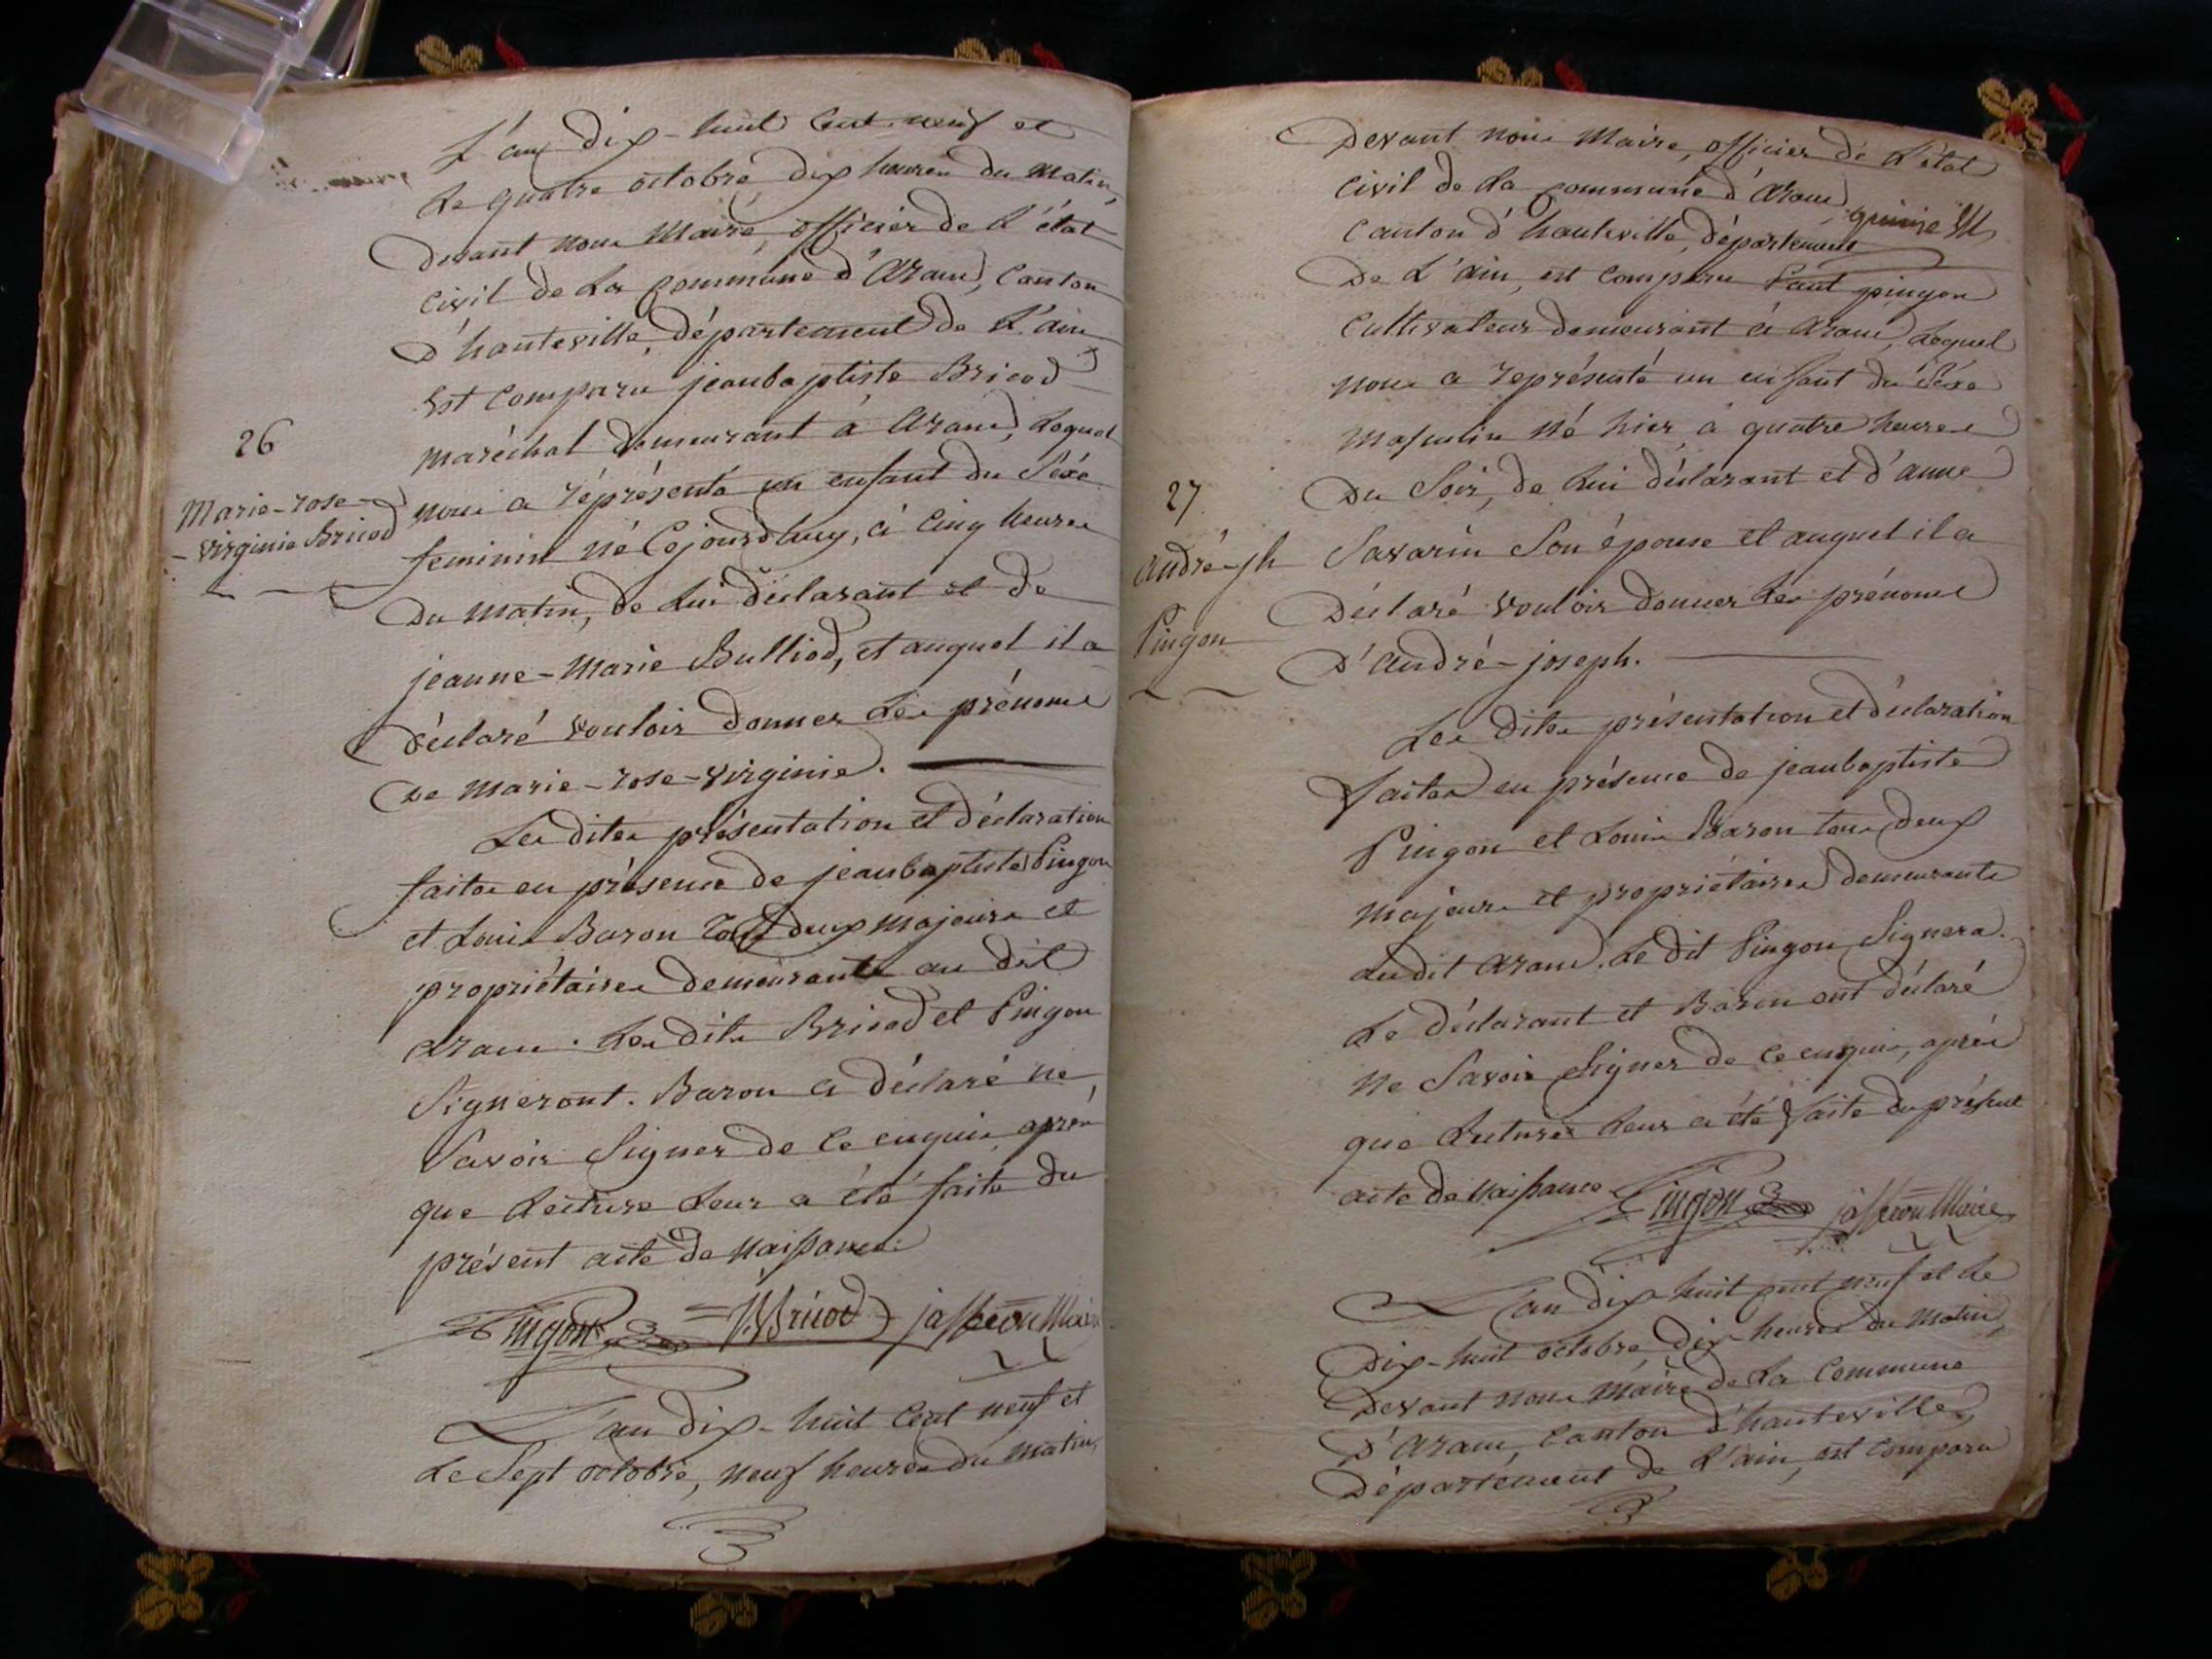 L'an dix-huit cent neuf et
le quatre octobre dix heures du matin,
devant nous Maire, officier de l'état
civil de la commune d'Aranc, Canton
d'hauteville, département de l'ain
Est comparu jeanbaptiste Bricod
26
maréchal demeurant à Aranc, lequel
Marie-rose-
-virginie Bricod
nous a réprésenté un enfant du Séxe
feminin né Cejourdhuy, à Cinq heures
du matin, de lui déclarant et de
jeanne-Marie Bulliod, et auquel il a
déclaré vouloir donner les prénoms
de Marie-rose-virginie.
Les dites présentation et déclaration
faites en présence de jeanbaptiste Pingon
et Louis Baron Tous deux majeurs et
propriétaires demeurants au dit
Aranc. Les dits Bricod et Pingon
Signeront. Baron a déclaré ne
Savoir Signer de ce enquis, après
que lecture leur a été faite du
présent acte de naissance.
Pingon Bricod Maire
L'an dix-huit Cent neuf et
le Sept octobre, neuf heures du matin,
Devant nous Maire, officier de l'état
Civil de la commune d'Aranc
Canton d'hauteville, département
De L'ain, est comparu pingon
Cultivateur demeurant à Aranc, lequel
nous a représenté un enfant du Séxe
masculin né hier à quatre heures
27
du Soir, de lui déclarant et d'anne
André-jh
Savarin Son épouse et auquel il a
déclaré vouloir donner les prénoms
Pingon
D'André-joseph.
Les dites présentation et déclaration
faites en présence de jeanbaptiste
Pingon et Louis Baron tous deux
majeurs et propriétaires demeurants
dudit Aranc. Le dit Pingon Signera.
Le déclarant et Baron ont déclaré
ne Savoir Signer de ce enquis, après
que lecture leur a été faite du présent
acte de naissance. Pingon Maire
L'an dix-huit cent neuf et le
Dix-huit octobre, dix heures du matin,
Devant nous maire de la Commune
D'Aranc, Canton d'hauteville,
Département de L'ain, est comparu